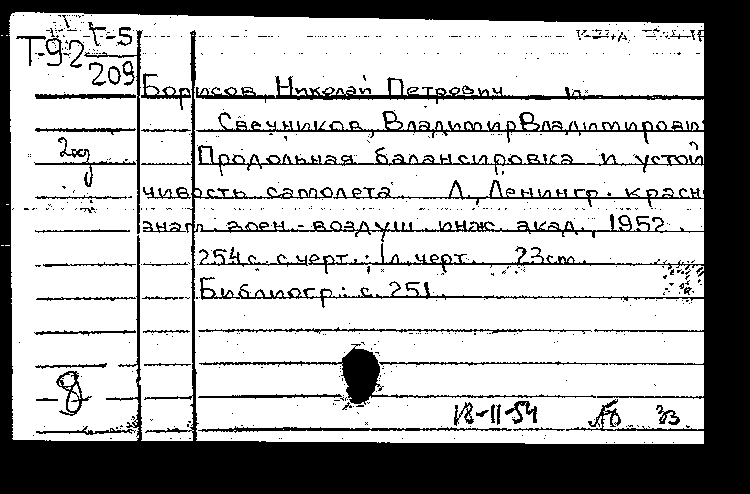 Т-92 Т-5
209
Борисов, Николай Петрович и
Свечников, Владимир Владимирович
Продольная балансировка и устой
чивость самолета Л., Ленингр. красн
знам. воен.-воздуш. инж. акад., 1952.
254 с. с черт.; 1 л. черт. 23 cm.
Библиогр.: с. 251.
8
18-11-54